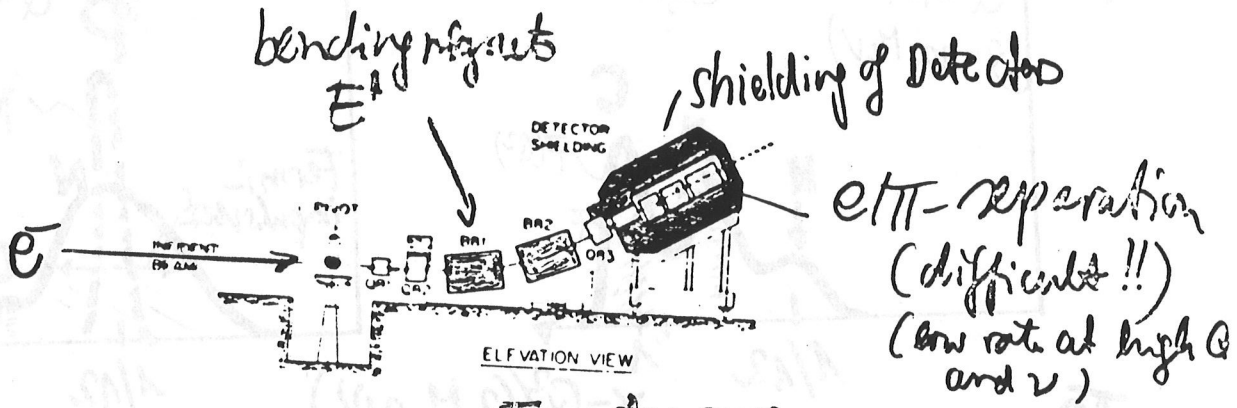 bending magnets
E'
shielding of Detectors
DETECTOR
SHIELDING
PIVOT
e⁻
INCIDENT
BEAM
BB1
BB2
QB3
e/π-separation
(difficult !!)
(low rate at high Q
and ν)
ELEVATION VIEW